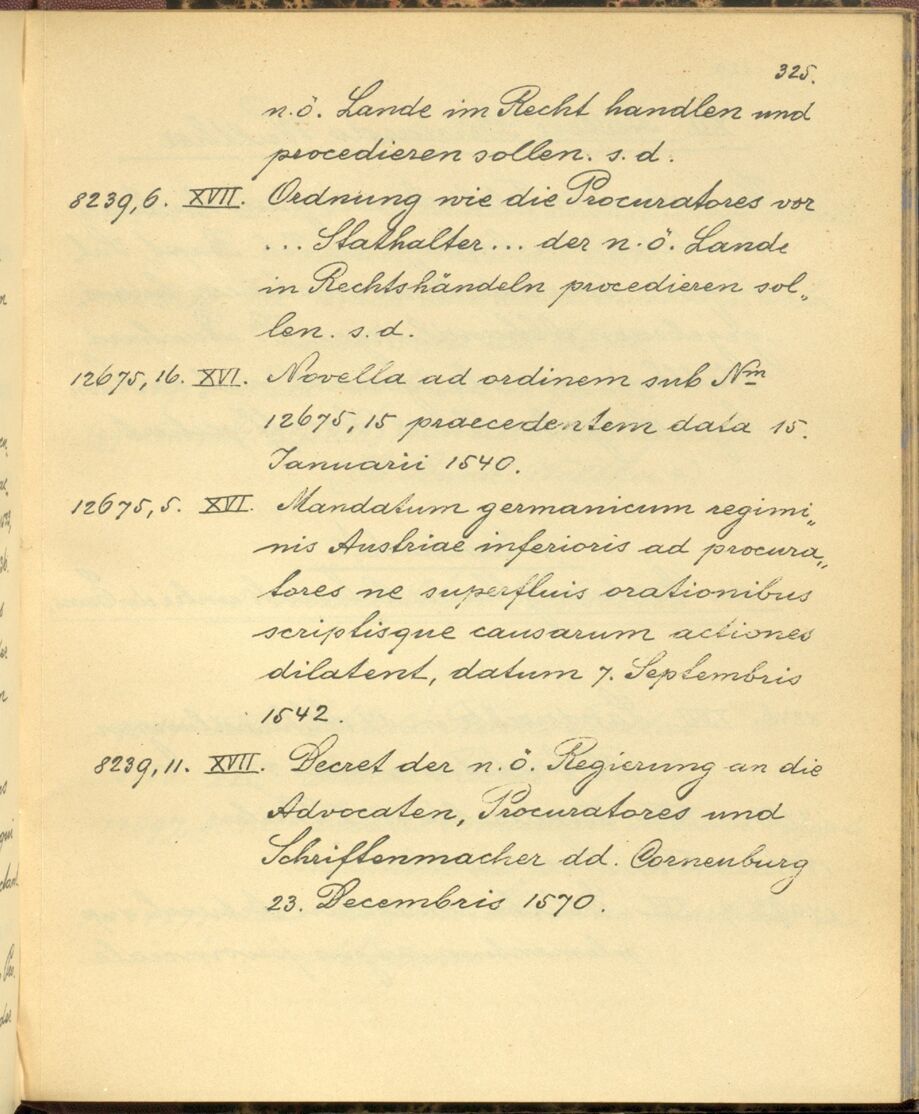 325.
n.ö. Lande im Recht handlen und
procedieren sollen. s. d.
8239,6. XVII. Ordnung wie die Procuratores vor
... Stathalter ... der n. ö. Lande
in Rechtshändeln procedieren sol„
len. s. d.
12675,16. XVI. Novella ad ordinem sub Nm
12675,15 praecedentem data 15.
Januarii 1540.
12675,5. XVI. Mandatum germanicum regimi„
nis Austriae inferioris ad procura„
tores ne superfluis orationibus
scriptisque causarum actiones
dilatent, datum 7. Septembris
1542.
8239,11. XVII. Decret der n. ö. Regierung an die
Advocaten, Procuratores und
Schriftenmacher dd. Corneuburg
23. Decembris 1570.